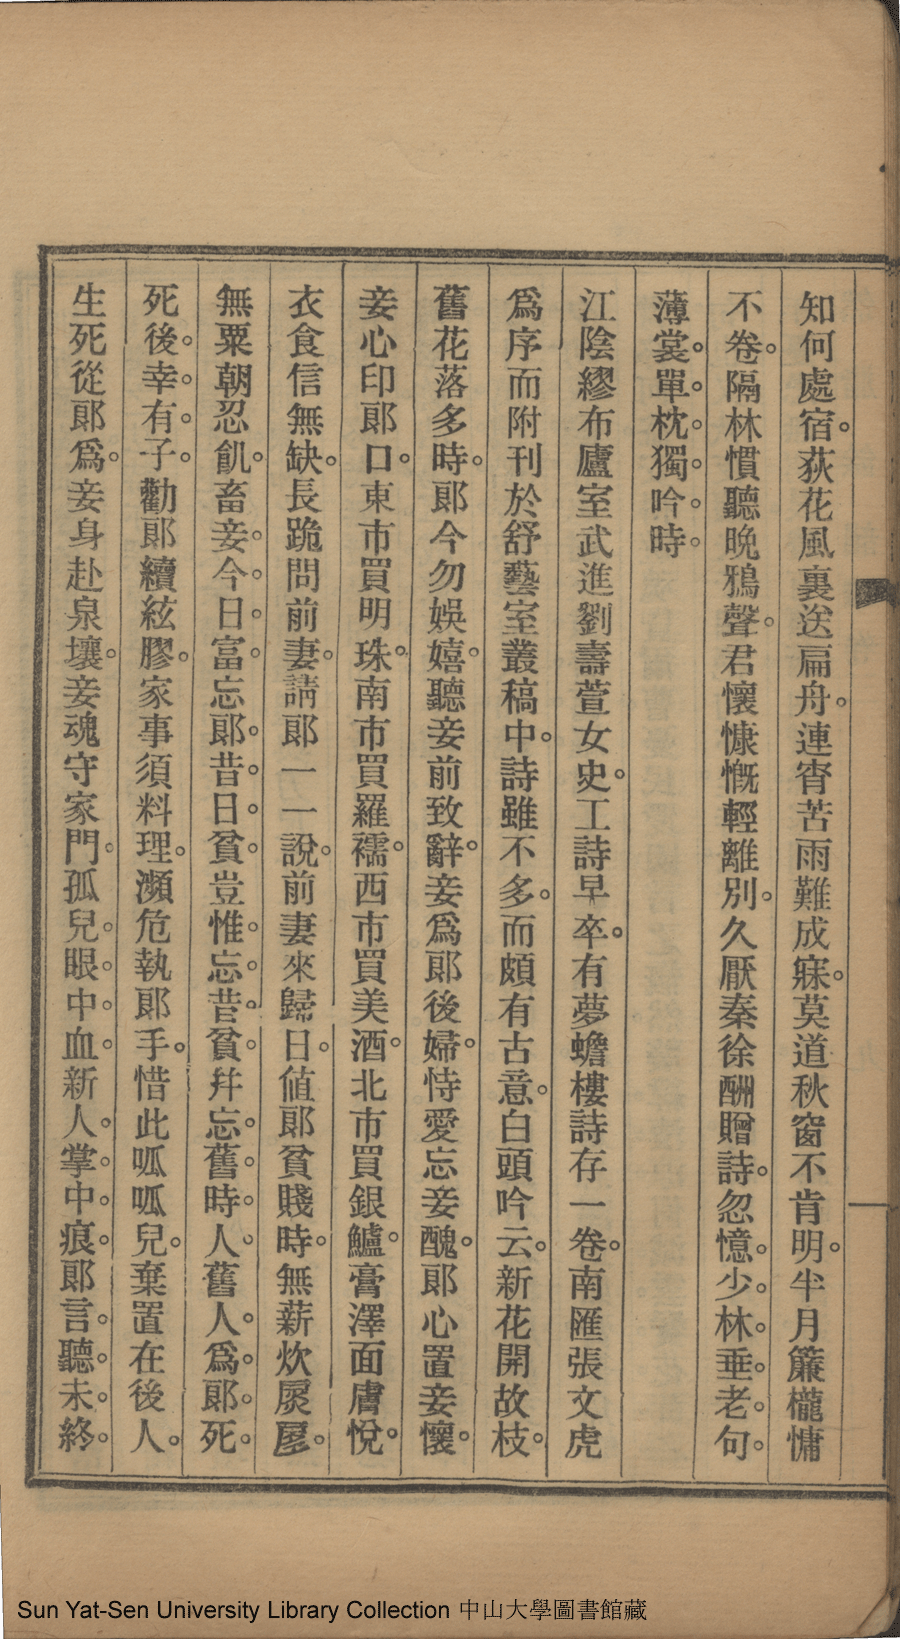 知何處宿。荻花風裏送扁舟。連宵苦雨難成寐。莫道秋窗不肯明。半月簾櫳慵
不卷。隔林慣聽晚鴉聲。君懷慷慨輕離別。久厭秦徐酬贈詩。忽憶。少。林。垂。老。句。
薄裳。單。枕。獨。吟。時。
江陰繆布廬室武進劉壽萱女史。工詩早卒。有夢蟾樓詩存一卷。南匯張文虎
爲序而附刊於舒藝室叢稿中。詩雖不多。而頗有古意。白頭吟云。新花開故枝。
舊花落多時。郞今勿娛嬉。聽妾前致辭。妾爲郞後婦。恃愛忘妾醜。郞心置妾懷。
妾心印郞口。東市買明珠。南市買羅襦。西市買美酒。北市買銀鱸。膏澤面膚悅。
衣食信無缺。長跪問前妻。請郞一一說。前妻來歸日。値郞貧賤時。無薪炊扊扅。
無粟朝忍飢。畜妾。今。日。富。忘郞。昔。日。貧。豈惟。忘。昔。貧。幷忘。舊。時。人。舊人。爲。郞。死。
死後。幸。有。子。勸郞續絃膠。家事須料理。瀕危執郞手。惜此呱呱兒。棄置在後人。
生死從郞爲。妾身赴泉壤。妾魂守家門。孤兒。眼。中。血。新人。掌。中。痕。郞言。聽。未。終。
Sun Yat-Sen University Library Collection 中山大學圖書館藏